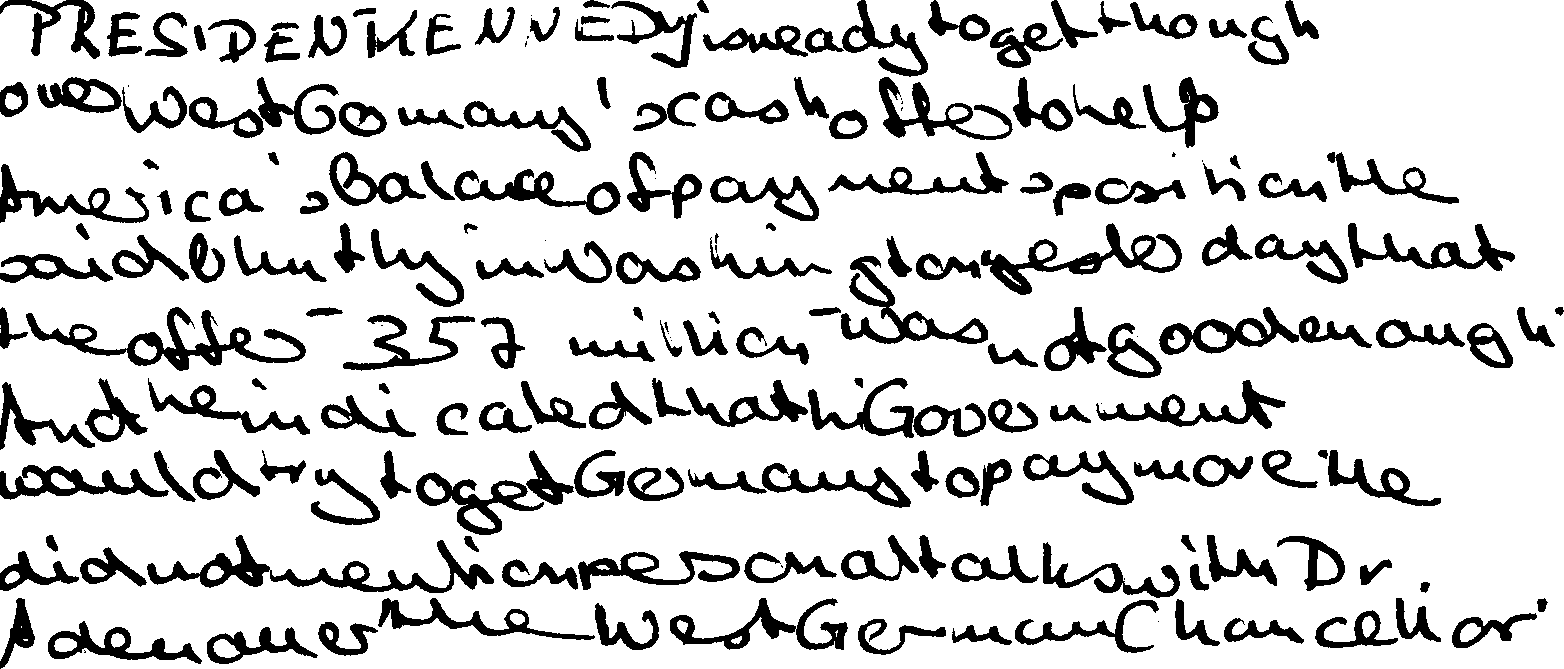 PRESIDENT KENNEDY is ready to get though
over West Germany's cash offer to help
America's Balance of payments position. He
said bluntly in Washington yesterday that
the offer - 357 million - was not good enough.
And he indicated that hi Government
would try to get Germany to pay more. He
did not mention personal talks with Dr.
Adenauer, the West German Chancellor.